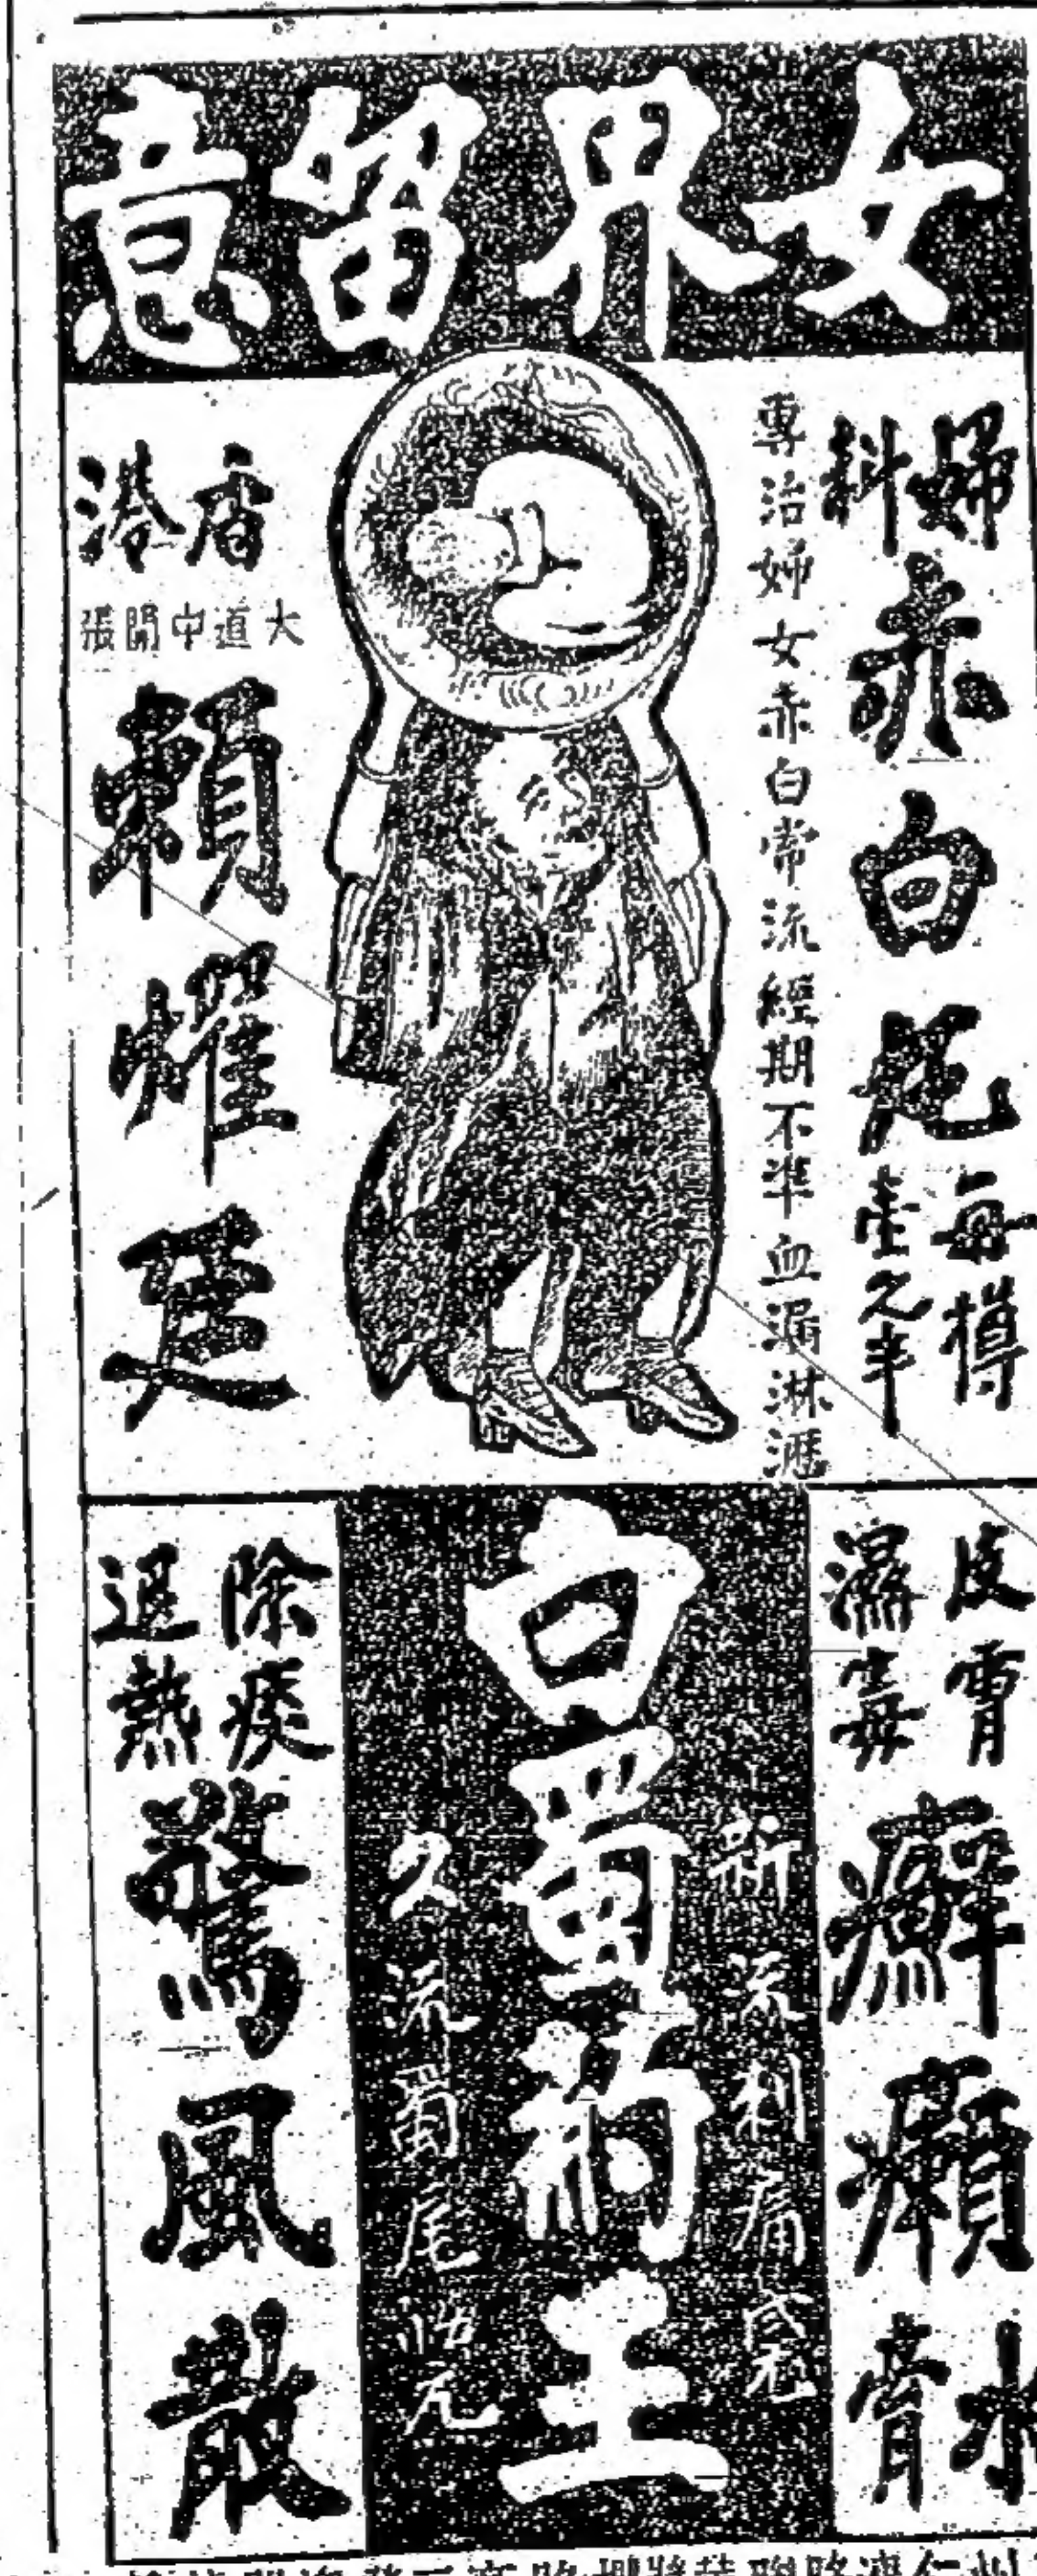 女界留意
婦科
赤白丸
每樽
壹元半
專治婦女赤白常流經期不準血漏淋瀝
香港
大道中開張
賴耀廷
皮膚
濕毒
癬癩
水膏
新流利痛
白蜀葯王
久流蜀尾
除痰
退熱
驚風散